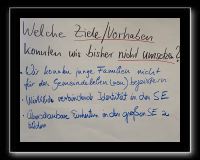 Welche Ziele/Vorhaben
konnten wir bisher nicht umsetzen?
• Wir konnten junge Familien nicht
für das Gemeindeleben begeistern
• Wirkliche verbindende Identität in der SE
• Überschaubare Einheiten in der großen SE zu
bilden